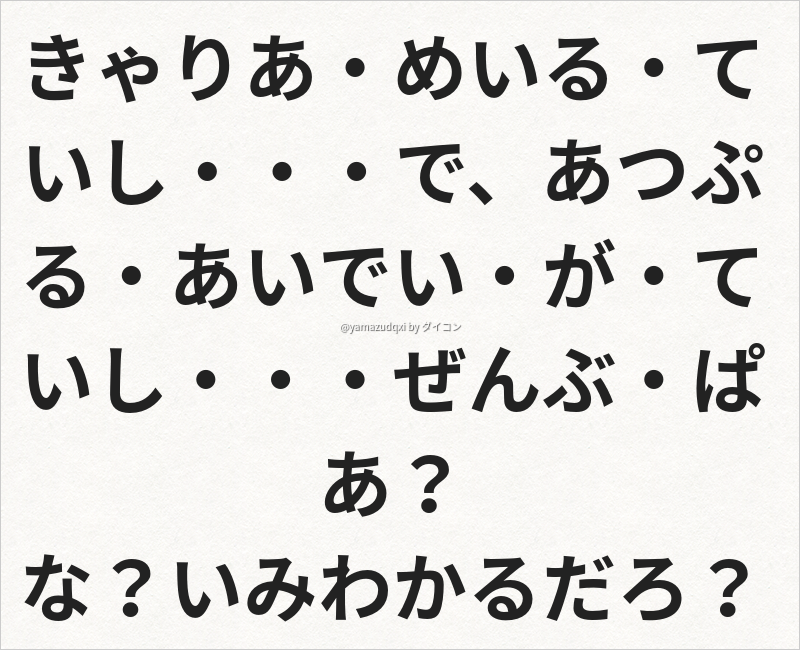 きゃりあ・めいる・て
いし・・・で、あつぷ
る・あいでい・が・て
いし・・・ぜんぶ・ぱ
あ？
な？いみわかるだろ？
@yamazudqxi by ダイコン